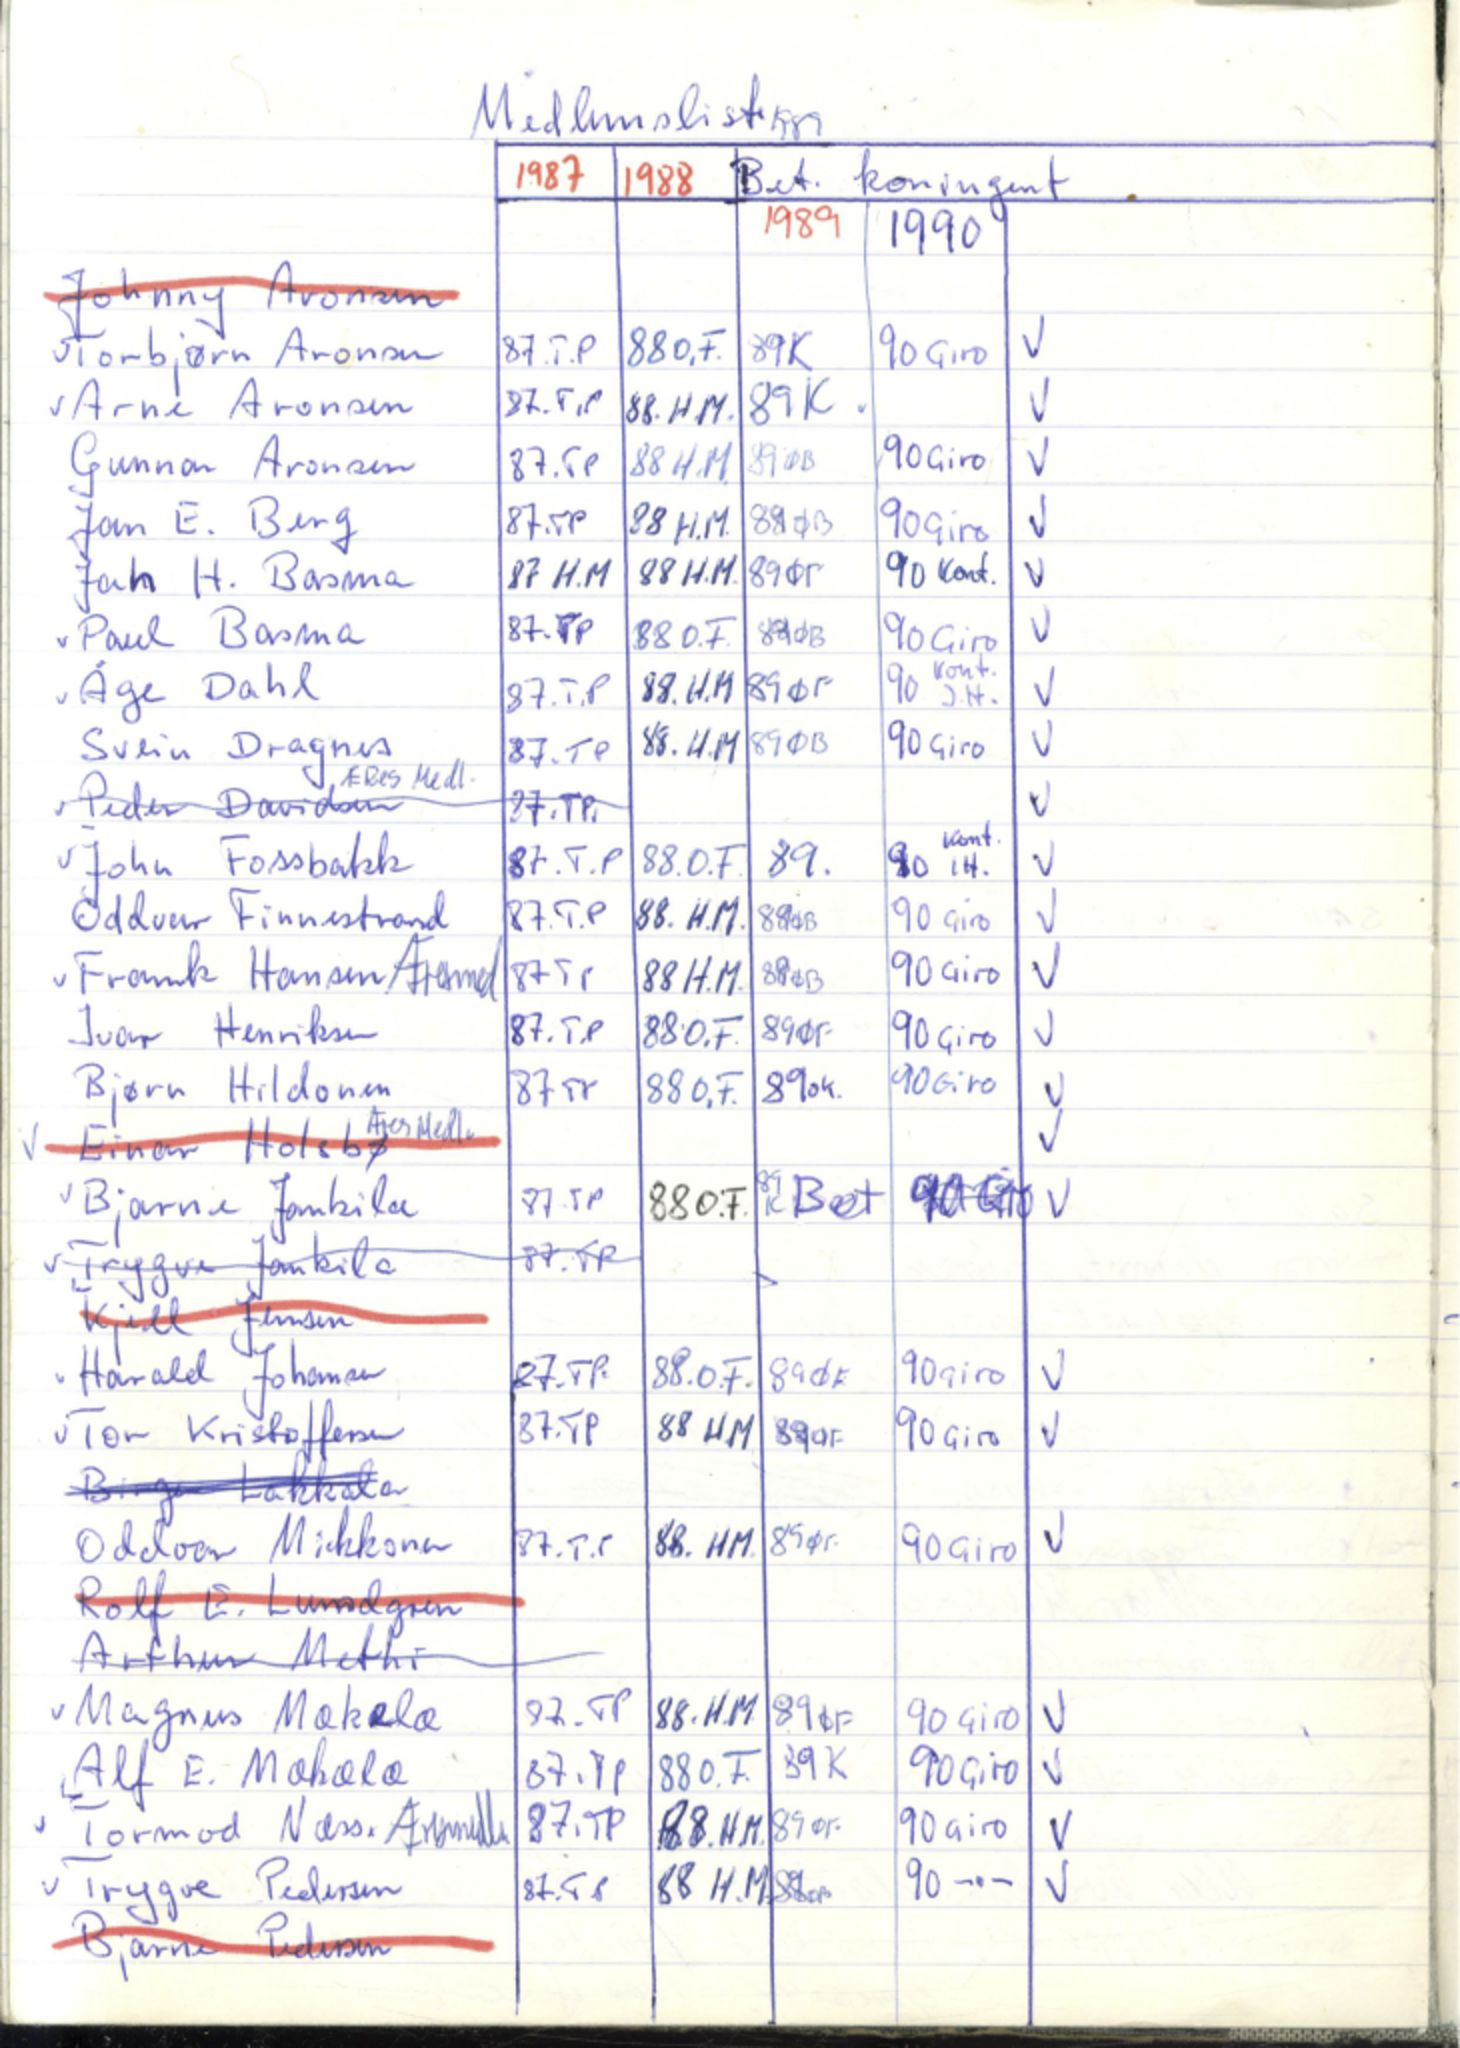 Medlemsliste 1989
1987 1988 Bet. koningent
1989 1990
Johnny Aronsen
√ Torbjørn Aronsen 87.T.P 88 O.F. 89K 90 Giro √
√ Arne Aronsen 87.T.P 88. H.M. 89K √
Gunnar Aronsen 87.TP 88 H.M. 89ØB 90 Giro √
Jan E. Berg 87.TP 88 H.M. 89ØB 90 Giro √
Jan H. Basma 87 H.M 88 H.M. 89ØF 90 Kont. √
√ Paul Basma 87.TP 88 O.F. 89ØB 90 Giro √
√ Åge Dahl 87.T.P 88. H.M 89ØF 90 Kont. J.H. √
Svein Dragnes 87.TP 88. H.M 89ØB 90 Giro √
√ Peder Davidsen ÆRes Medl. 87.TP. √
√ John Fossbakk 87.T.P 88.O.F. 89. 90 Kont. I.H. √
Oddvar Finnestrand 87.T.P 88. H.M. 89ØB 90 Giro √
√ Frank Hansen / Æresmed 87 TP 88 H.M. 89ØB 90 Giro √
Ivar Henriksen 87.T.P 88 O.F. 89ØF 90 Giro √
Bjørn Hildonen 87 TP 88 O.F. 89 OK. 90 Giro √
√ Einar Holsbø Æres Medl. √
√ Bjarne Jankila 87.TP 88 O.F. 89 K Bet 90 Giro √
√ Trygve Jankila 87.TP
Kjell Jensen
√ Harald Johansen 87.TP. 88.O.F. 89ØF 90 Giro √
√ Tor Kristoffersen 87.TP 88 H.M 89ØF 90 Giro √
Birger Lakkala
Oddvar Mikkonen 87.T.P 88. H.M. 89ØF. 90 Giro √
Rolf E. Lundgren
Arthur Methi
√ Magnus Makala 87.TP 88. H.M 89ØF 90 Giro √
Alf E. Makala 87.TP 88 O.F. 89 K 90 Giro √
√ Tormod Næss. 87.TP 88. H.M. 89ØF. 90 Giro √
√ Trygve Pedersen 87.TP 88 H.M. 89ØB 90 -"- √
Bjarne Pedersen